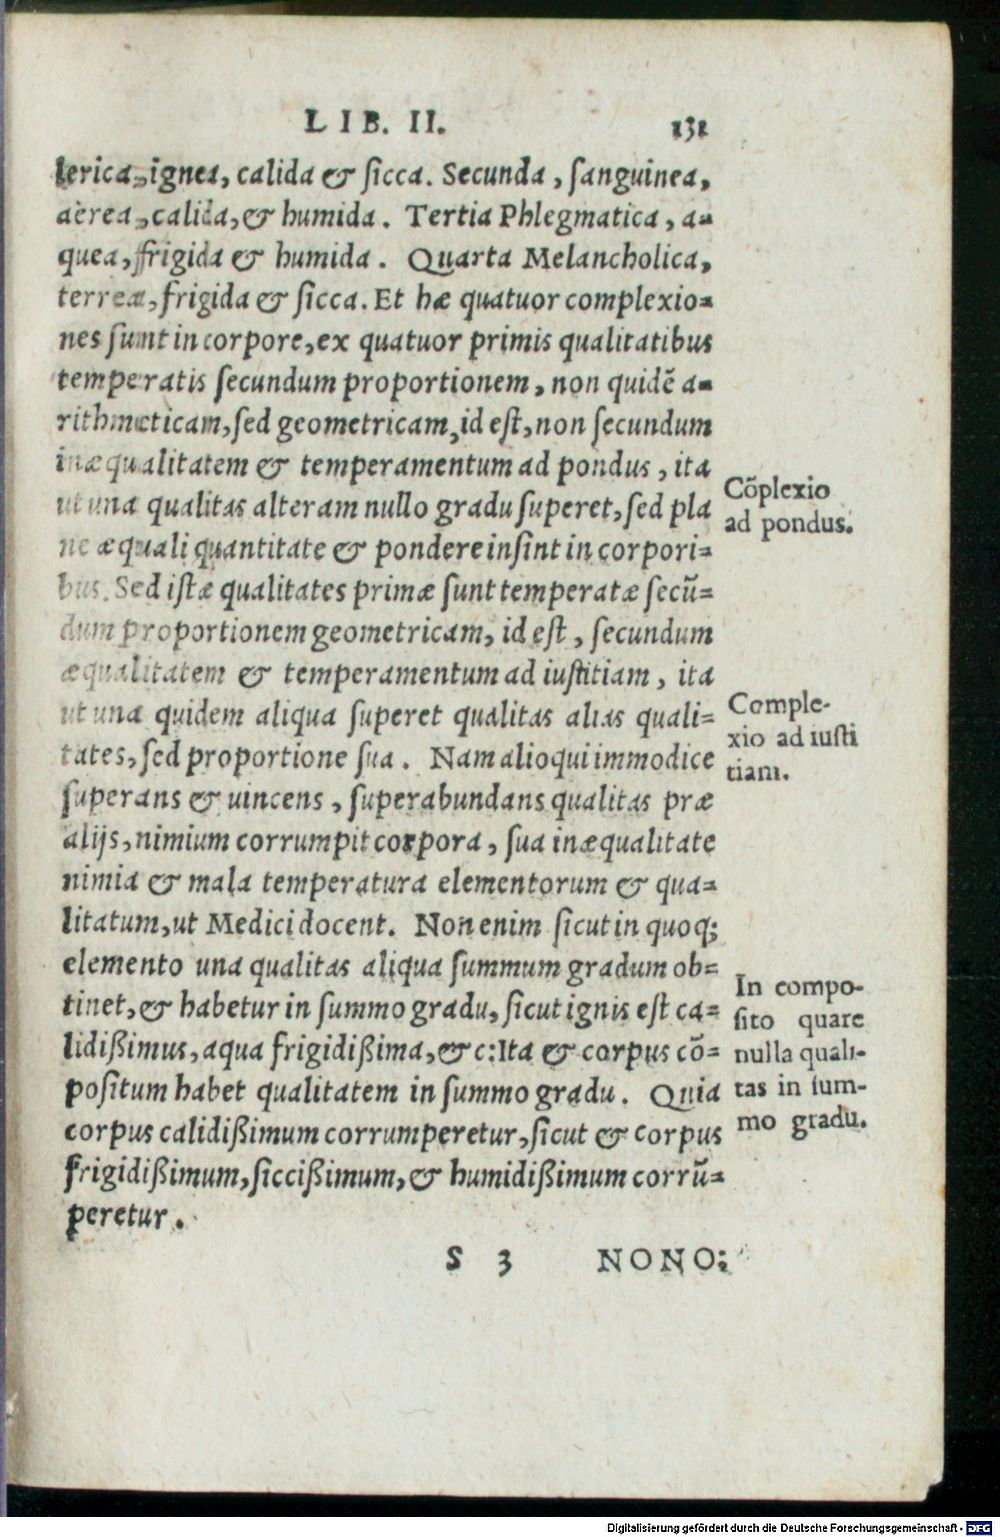 LIB. II. 131
lerica, ignea, calida & sicca. Secunda, sanguinea,
aërea, calida, & humida. Tertia Phlegmatica, a-
quea, frigida & humida. Quarta Melancholica,
terrea, frigida & sicca. Et hæ quatuor complexio-
nes sunt in corpore, ex quatuor primis qualitatibus
temperatis secundum proportionem, non quidẽ a-
rithmeticam, sed geometricam, id est, non secundum
inæqualitatem & temperamentum ad pondus, ita
ut una qualitas alteram nullo gradu superet, sed pla
ne æquali quantitate & pondere insint in corpori-
bus. Sed istæ qualitates primæ sunt temperatæ secũ-
dum proportionem geometricam, id est, secundum
æqualitatem & temperamentum ad iustitiam, ita
ut una quidem aliqua superet qualitas alias quali-
tates, sed proportione sua. Nam alioqui immodice
superans & uincens, superabundans qualitas præ
alijs, nimium corrumpit corpora, sua inæqualitate
nimia & mala temperatura elementorum & qua-
litatum, ut Medici docent. Non enim sicut in quoq;
elemento una qualitas aliqua summum gradum ob-
tinet, & habetur in summo gradu, sicut ignis est ca-
lidißimus, aqua frigidißima, & c: Ita & corpus cõ-
positum habet qualitatem in summo gradu. Quia
corpus calidißimum corrumperetur, sicut & corpus
frigidißimum, siccißimum, & humidißimum corrũ-
peretur.
Cõplexio
ad pondus.
Comple-
xio ad iusti
tiam.
In compo-
sito quare
nulla quali-
tas in sum-
mo gradu.
S 3 NONO;
Digitalisierung gefördert durch die Deutsche Forschungsgemeinschaft - DFG